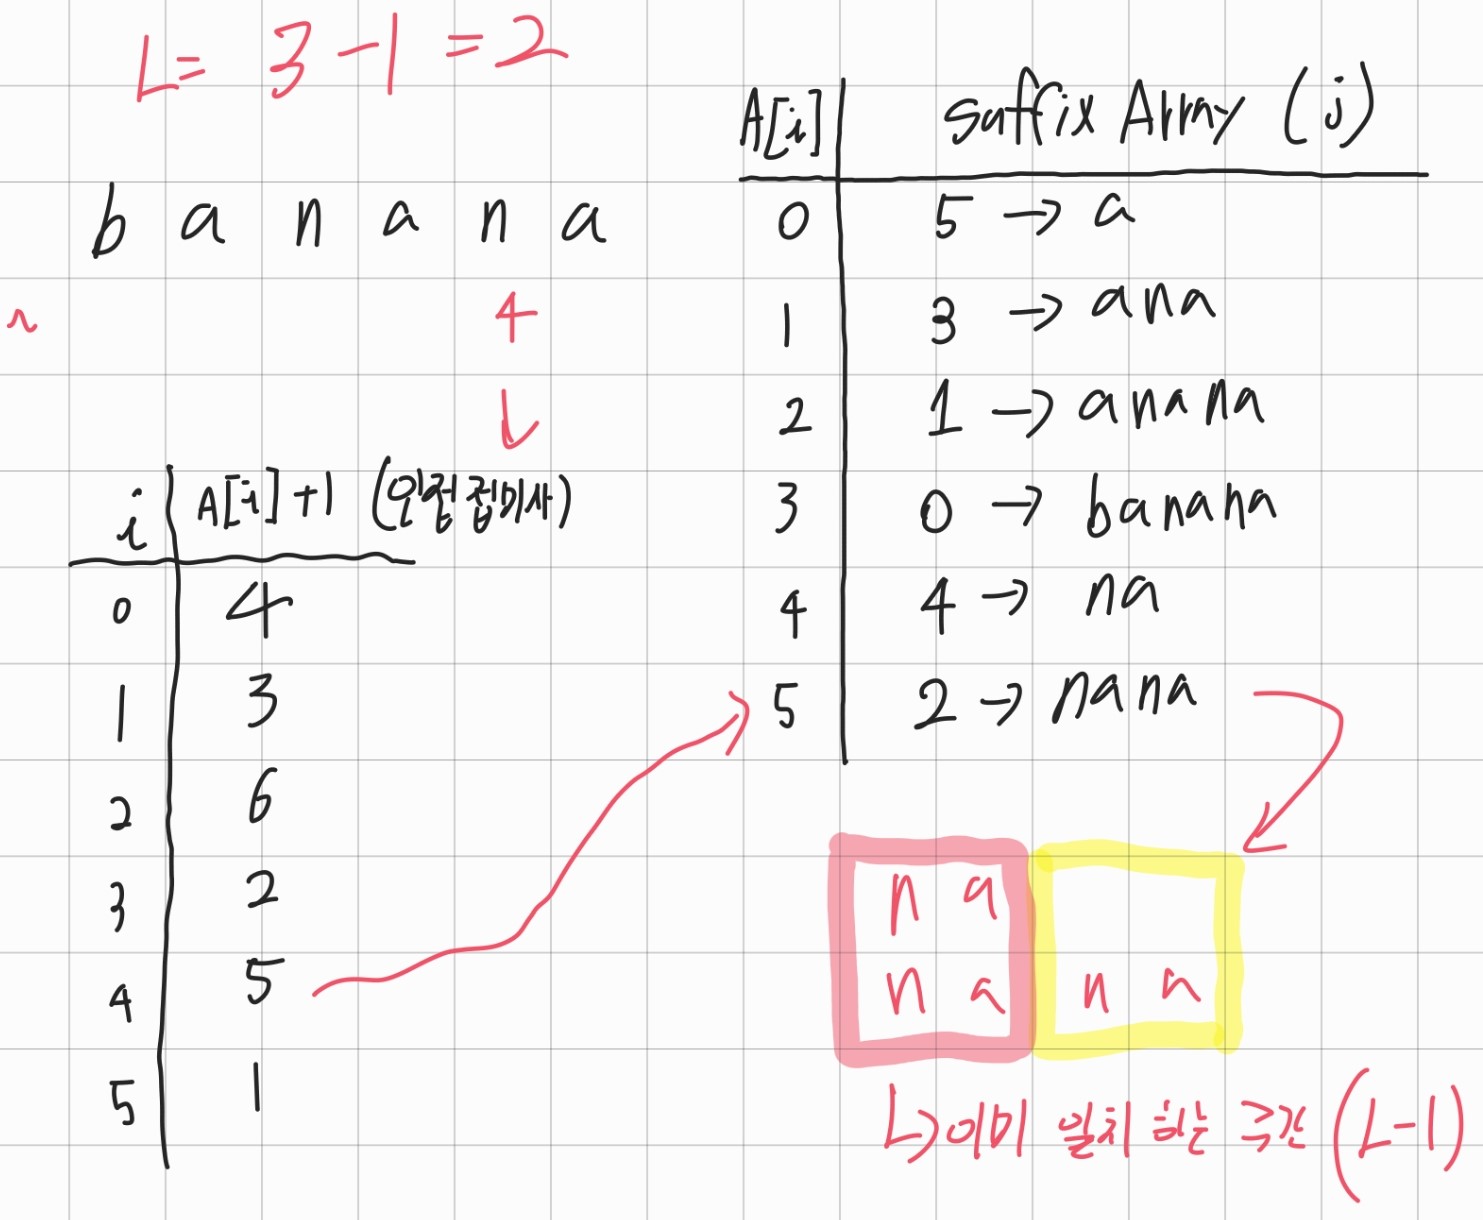 L = 3 - 1 = 2
b a n a n a
~
4
↓
i | A[i]+1 (인접접미사)
0 | 4
1 | 3
2 | 6
3 | 2
4 | 5
5 | 1
A[i] | Suffix Array (j)
0 | 5 → a
1 | 3 → ana
2 | 1 → anana
3 | 0 → banana
4 | 4 → na
5 | 2 → nana
n a
n a n a
↳ 이미 일치하는 구간 (L-1)